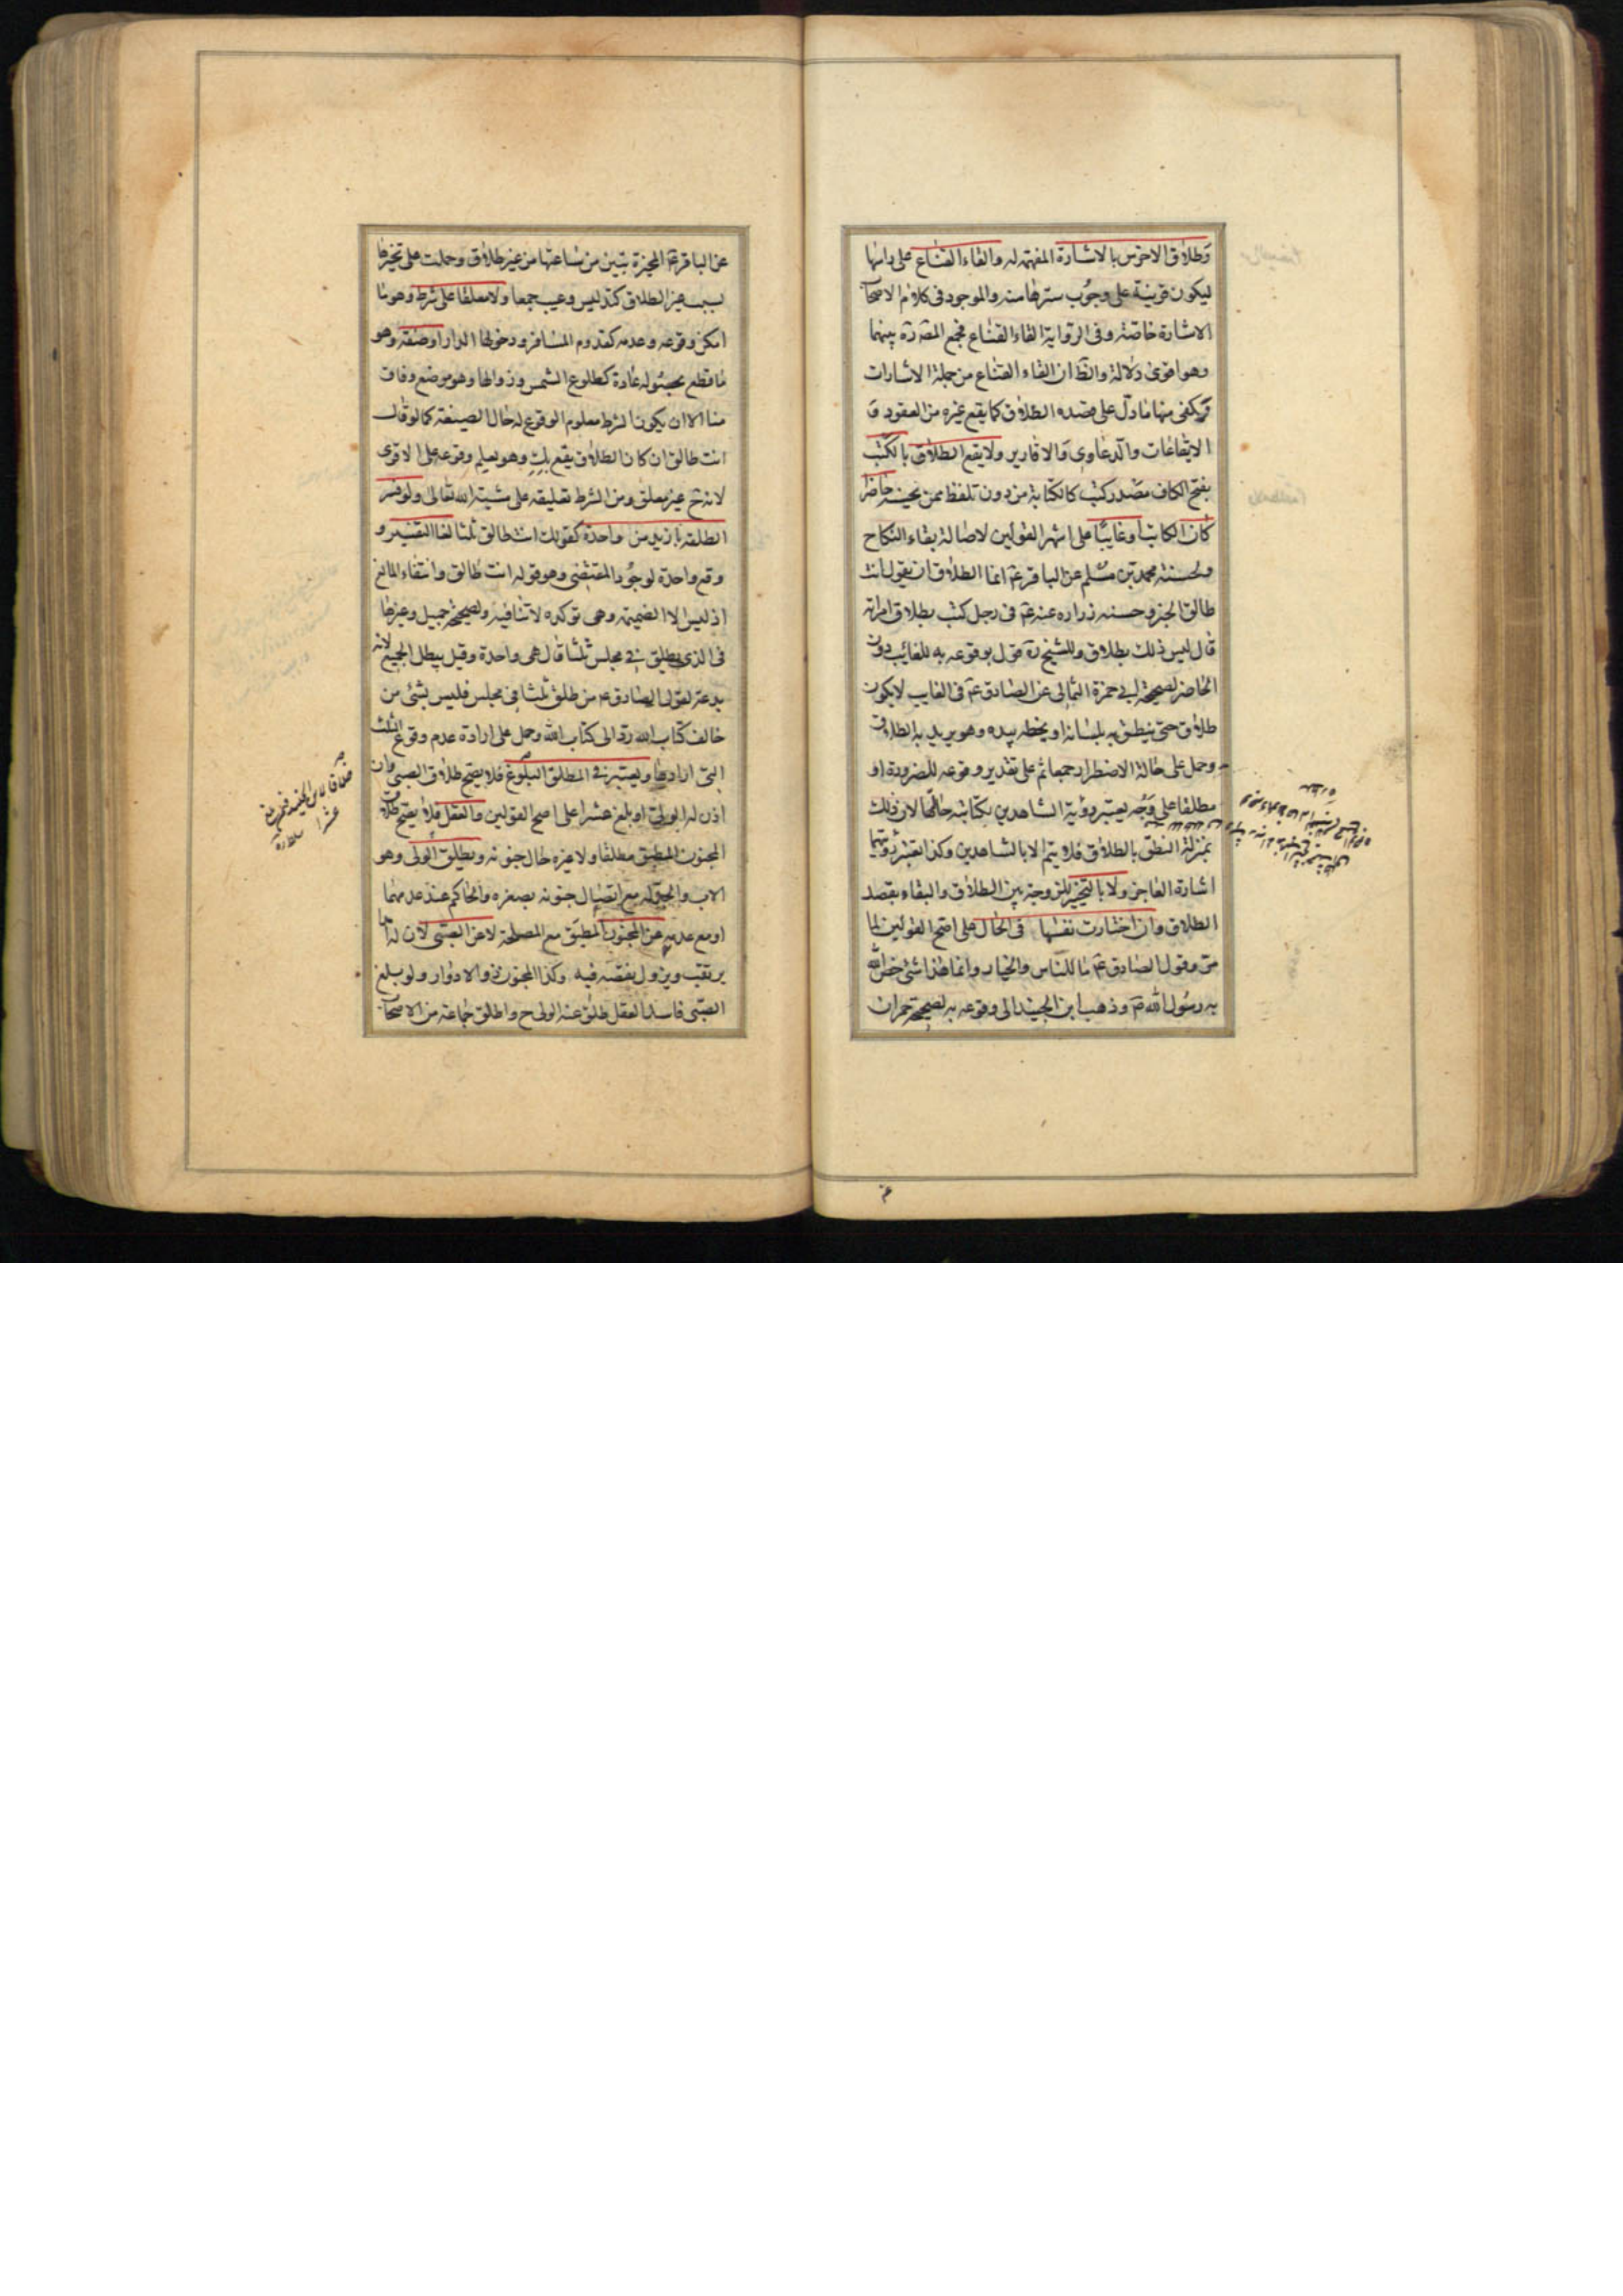 وطلاق الاخرس بالاشارة المفهمة له والقاء القناع على راسها
ليكون قرينة على وجوب سترها منه والموجود فى كلام الاصحاب
الاشارة خاصة وفى الرواية القاء القناع فجمع المص ره بينهما
وهو اقوى دلالة والظ ان القاء القناع من جملة الاشارات
ويكفى منها ما دل على قصده الطلاق كما يقع غيره من العقود و
الايقاعات والدعاوى والاقارير ولا يقع الطلاق بالكتب
بفتح الكاف مصدر كتب كالكتابة من دون تلفظ ممن يحسنه حاضرا
كان الكاتب او غايبا على اشهر القولين لاصالة بقاء النكاح
ولحسنة محمد بن مسلم عن الباقر ع انما الطلاق ان يقول انت
طالق الخبر وحسنه زراره عنه ع فى رجل كتب بطلاق امراته
قال ليس ذلك بطلاق وللشيخ ره قول بوقوعه به للغائب دون
الحاضر لصحيحة ابى حمزة الثمالى عن الصادق ع فى الغايب لا يكون
طلاق حتى ينطق به بلسانه او يخطه بيده وهو يريد به الطلاق
وحمل على حالة الاضطرار جمعا ثم على تقدير وقوعه للضرورة او
مطلقا على وجه يعتبر رؤية الشاهدين بكتابته حالتها لان ذلك
بمنزلة النطق بالطلاق فلا يتم الا بالشاهدين وكذا تعتبر رؤيتهما
اشارة العاجز ولا بالتخيير للزوجة بين الطلاق والبقاء بقصد
الطلاق وان اختارت نفسها فى الحال على اصح القولين لما
مر وقول الصادق ع ما للناس والخيار وانما هذا شئ خص الله
به رسول الله ص وذهب ابن الجنيد الى وقوعه به لصحيحة حمران
عن الباقر ع المخيرة تبين من ساعتها من غير طلاق وحملت على تخيرها
بسبب غير الطلاق كتدليس وعيب جمعا ولا معلقا على شرط وهو ما
امكن وقوعه وعدمه كقدوم المسافر ودخولها الدار او صفة وهو
ما قطع بحصوله عادة كطلوع الشمس وزوالها وهو موضع وفاق
منا الا ان يكون الشرط معلوم الوقوع له حال الصيغة كما لو قال
انت طالق ان كان الطلاق يقع بك وهو يعلم وقوعه على الاقوى
لانه ح غير معلق ومن الشرط تعليقه على مشية الله تعالى ولو فسر
الطلقة بازيد من واحدة كقولك انت طالق ثلثا لغا التفسير و
وقع واحدة لوجود المقتضى وهو قوله انت طالق وانتفاء المانع
اذ ليس الا الضميمة وهى توكده لا تنافيه ولصحيحة جميل وغيرها
فى الذى يطلق فى مجلس ثلثا قال هى واحدة وقيل يبطل الجميع لانه
بدعة لقول الصادق ع من طلق ثلثا فى مجلس فليس بشئ من
خالف كتاب الله رد الى كتاب الله وحمل على ارادة عدم وقوع الثلث
التى ارادها ويعتبر فى المطلق البلوغ فلا يصح طلاق الصبى وان
اذن له الولى او بلغ عشرا على اصح القولين والعقل فلا يصح طلاق
المجنون المطبق مطلقا ولا غيره حال جنونه ويطلق الولى وهو
الاب والجد له مع اتصال جنونه بصغره والحاكم عند عدمهما
او مع عدمه عن المجنون المطبق مع المصلحة لا عن الصبى لان له امدا
يرتقب ويزول نقصه فيه وكذا المجنون ذو الادوار ولو بلغ
الصبى فاسد العقل طلق عنه الولى ح واطلق جماعة من الاصحاب